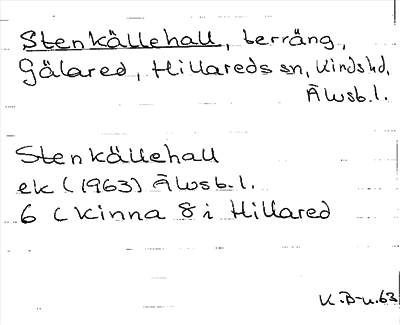 Stenkällehall, terräng,
Gälared, Hillareds sn, Kinds hd,
Älvsb.l.
Stenkällehall
ek (1963) Älvsb.l.
6 C Kinna 8 i Hillared
K.B-u.63